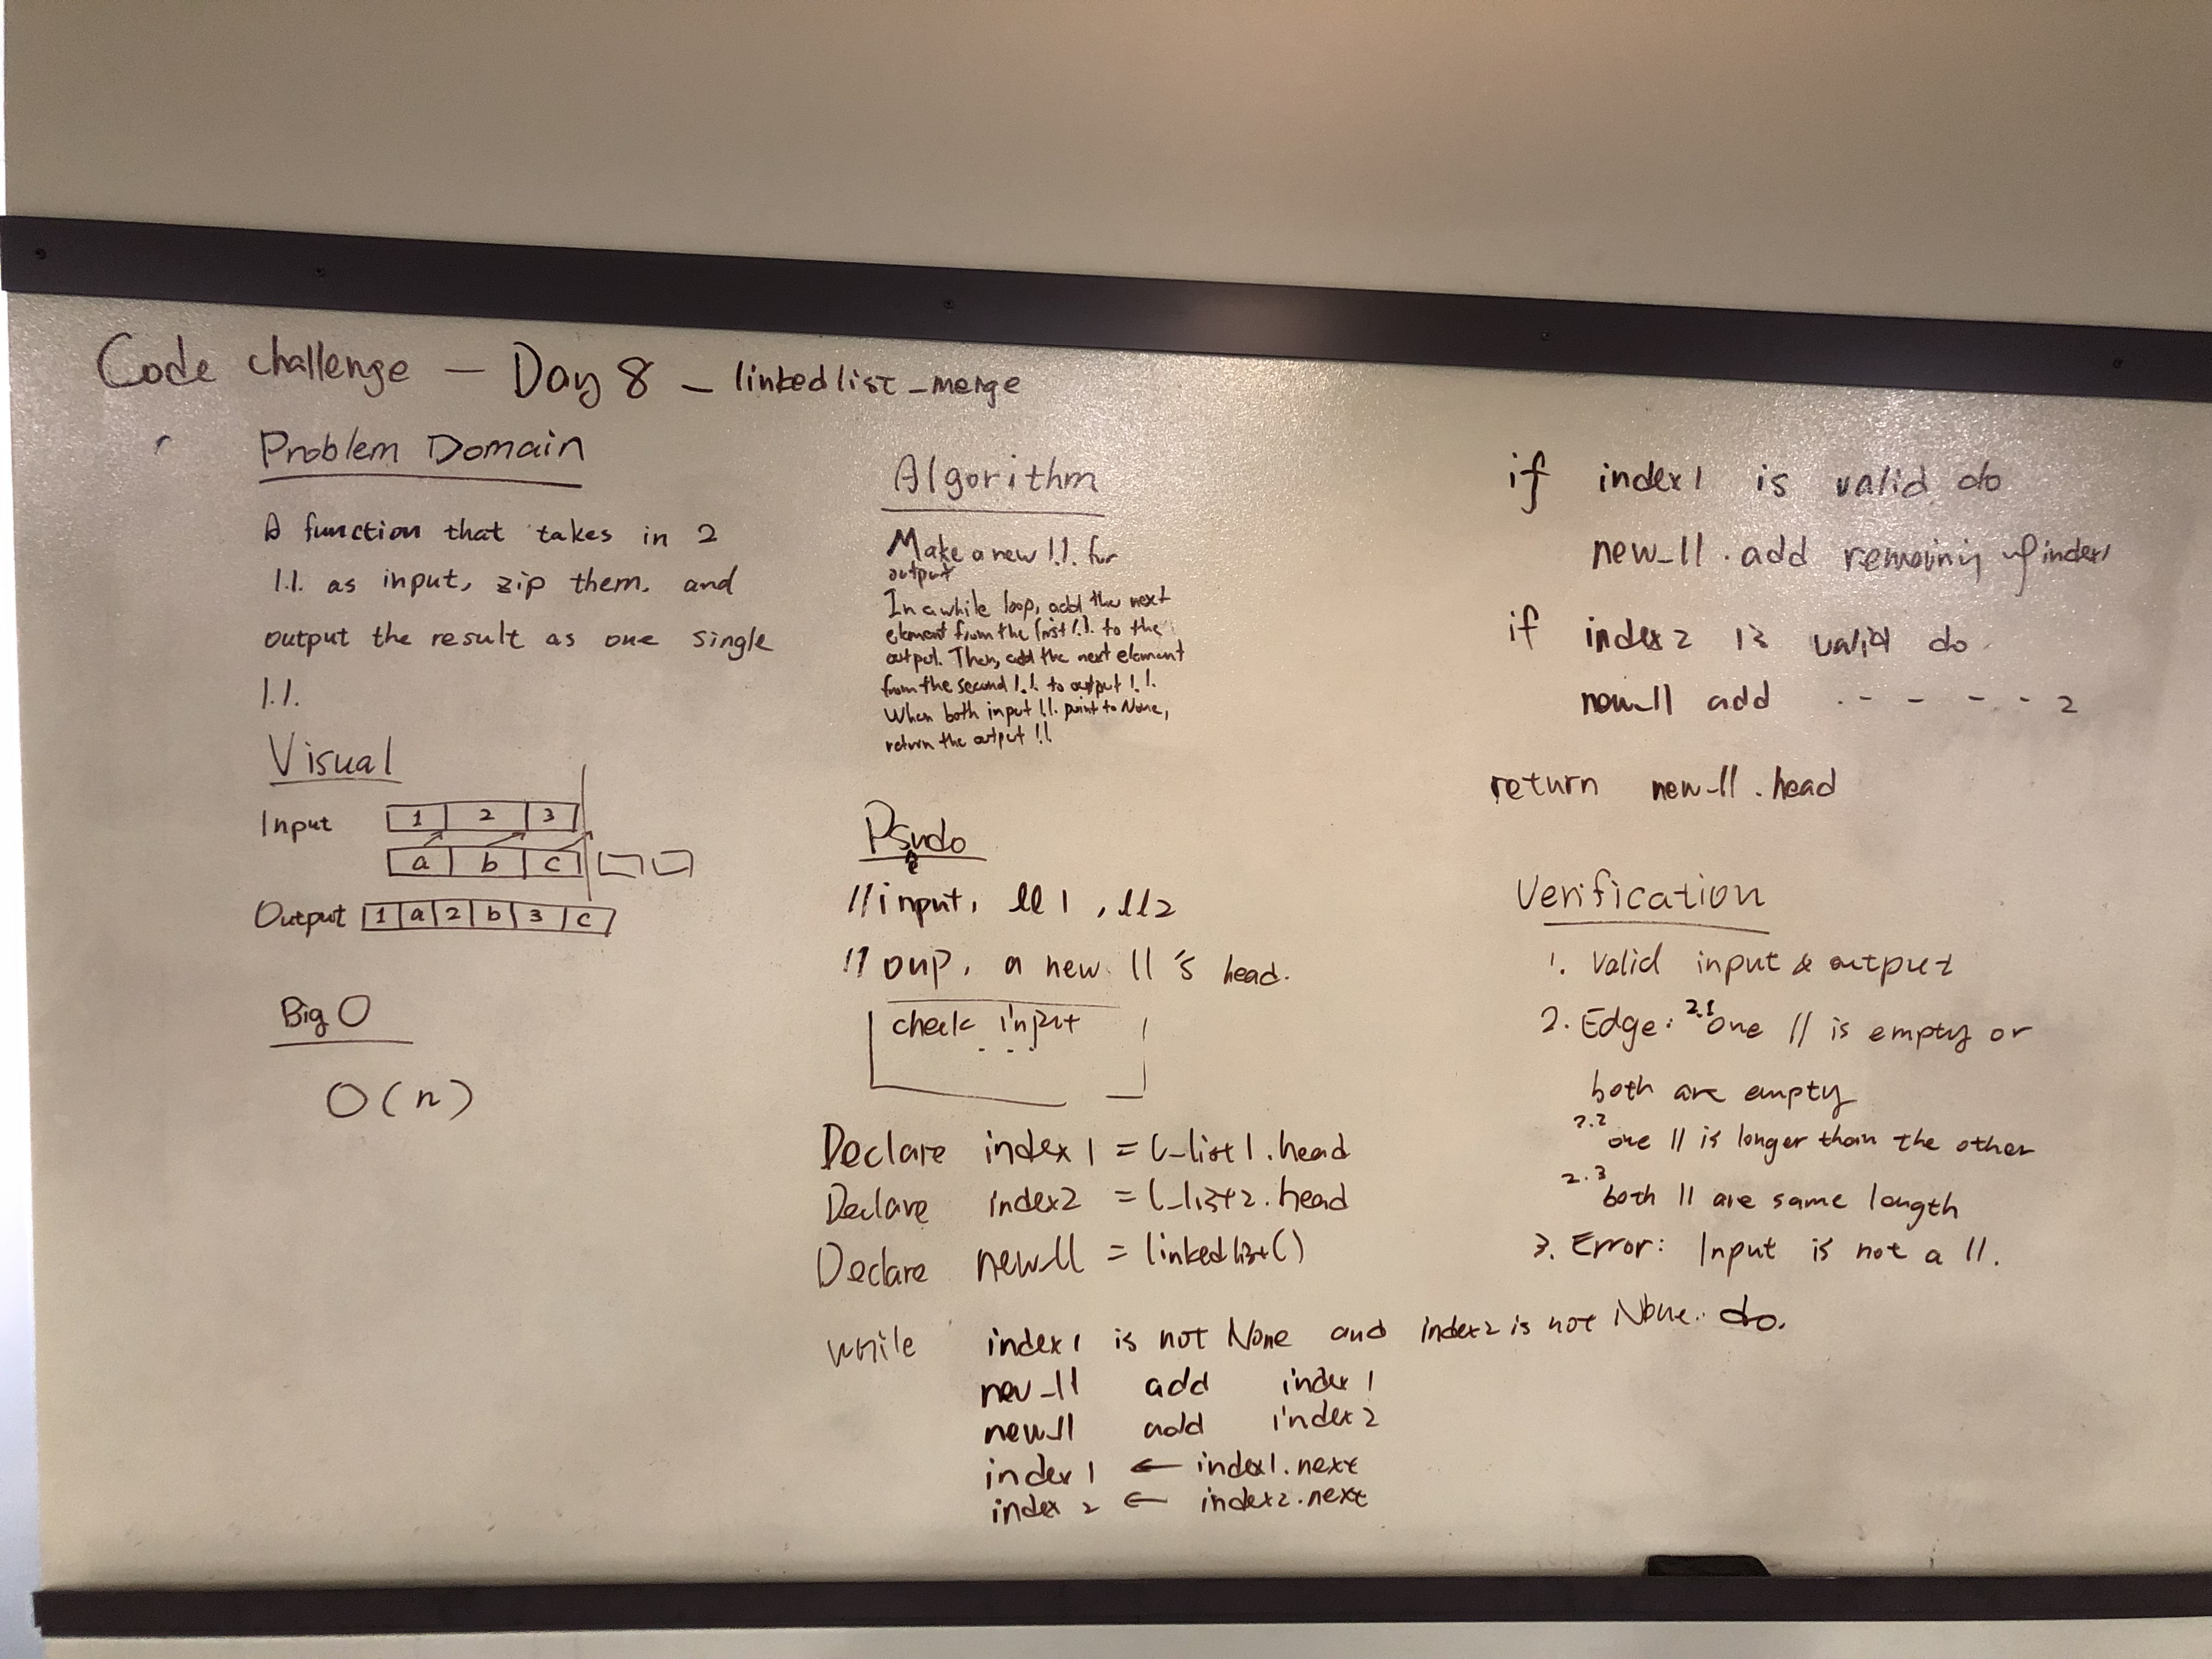 Code challenge — Day 8 – linkedlist_merge
Problem Domain
A function that takes in 2
l.l. as input, zip them, and
output the result as one single
l.l.
Visual
Input 1 2 3
a b c
Output 1 a 2 b 3 c
Big O
O(n)
Algorithm
Make a new l.l. for
output
In a while loop, add the next
element from the first l.l. to the
output. Then, add the next element
from the second l.l. to output l.l.
When both input l.l. point to None,
return the output l.l
Psudo
e
// input, ll1, ll2
// oup, a new ll's head.
check input
...
Declare index1 = l_list1.head
Declare index2 = l_list2.head
Declare new_ll = linkedlist()
while index1 is not None and index2 is not None. do.
new_ll add index1
new_ll add index2
index1 ← index1.next
index2 ← index2.next
if index1 is valid do
new_ll.add of index1
if index2 is valid do
new_ll add - - - - - 2
return new_ll.head
Verification
1. Valid input & output
2. Edge: 2.1 One ll is empty or
both are empty
2.2 one ll is longer than the other
2.3 both ll are same length
3. Error: Input is not a ll.